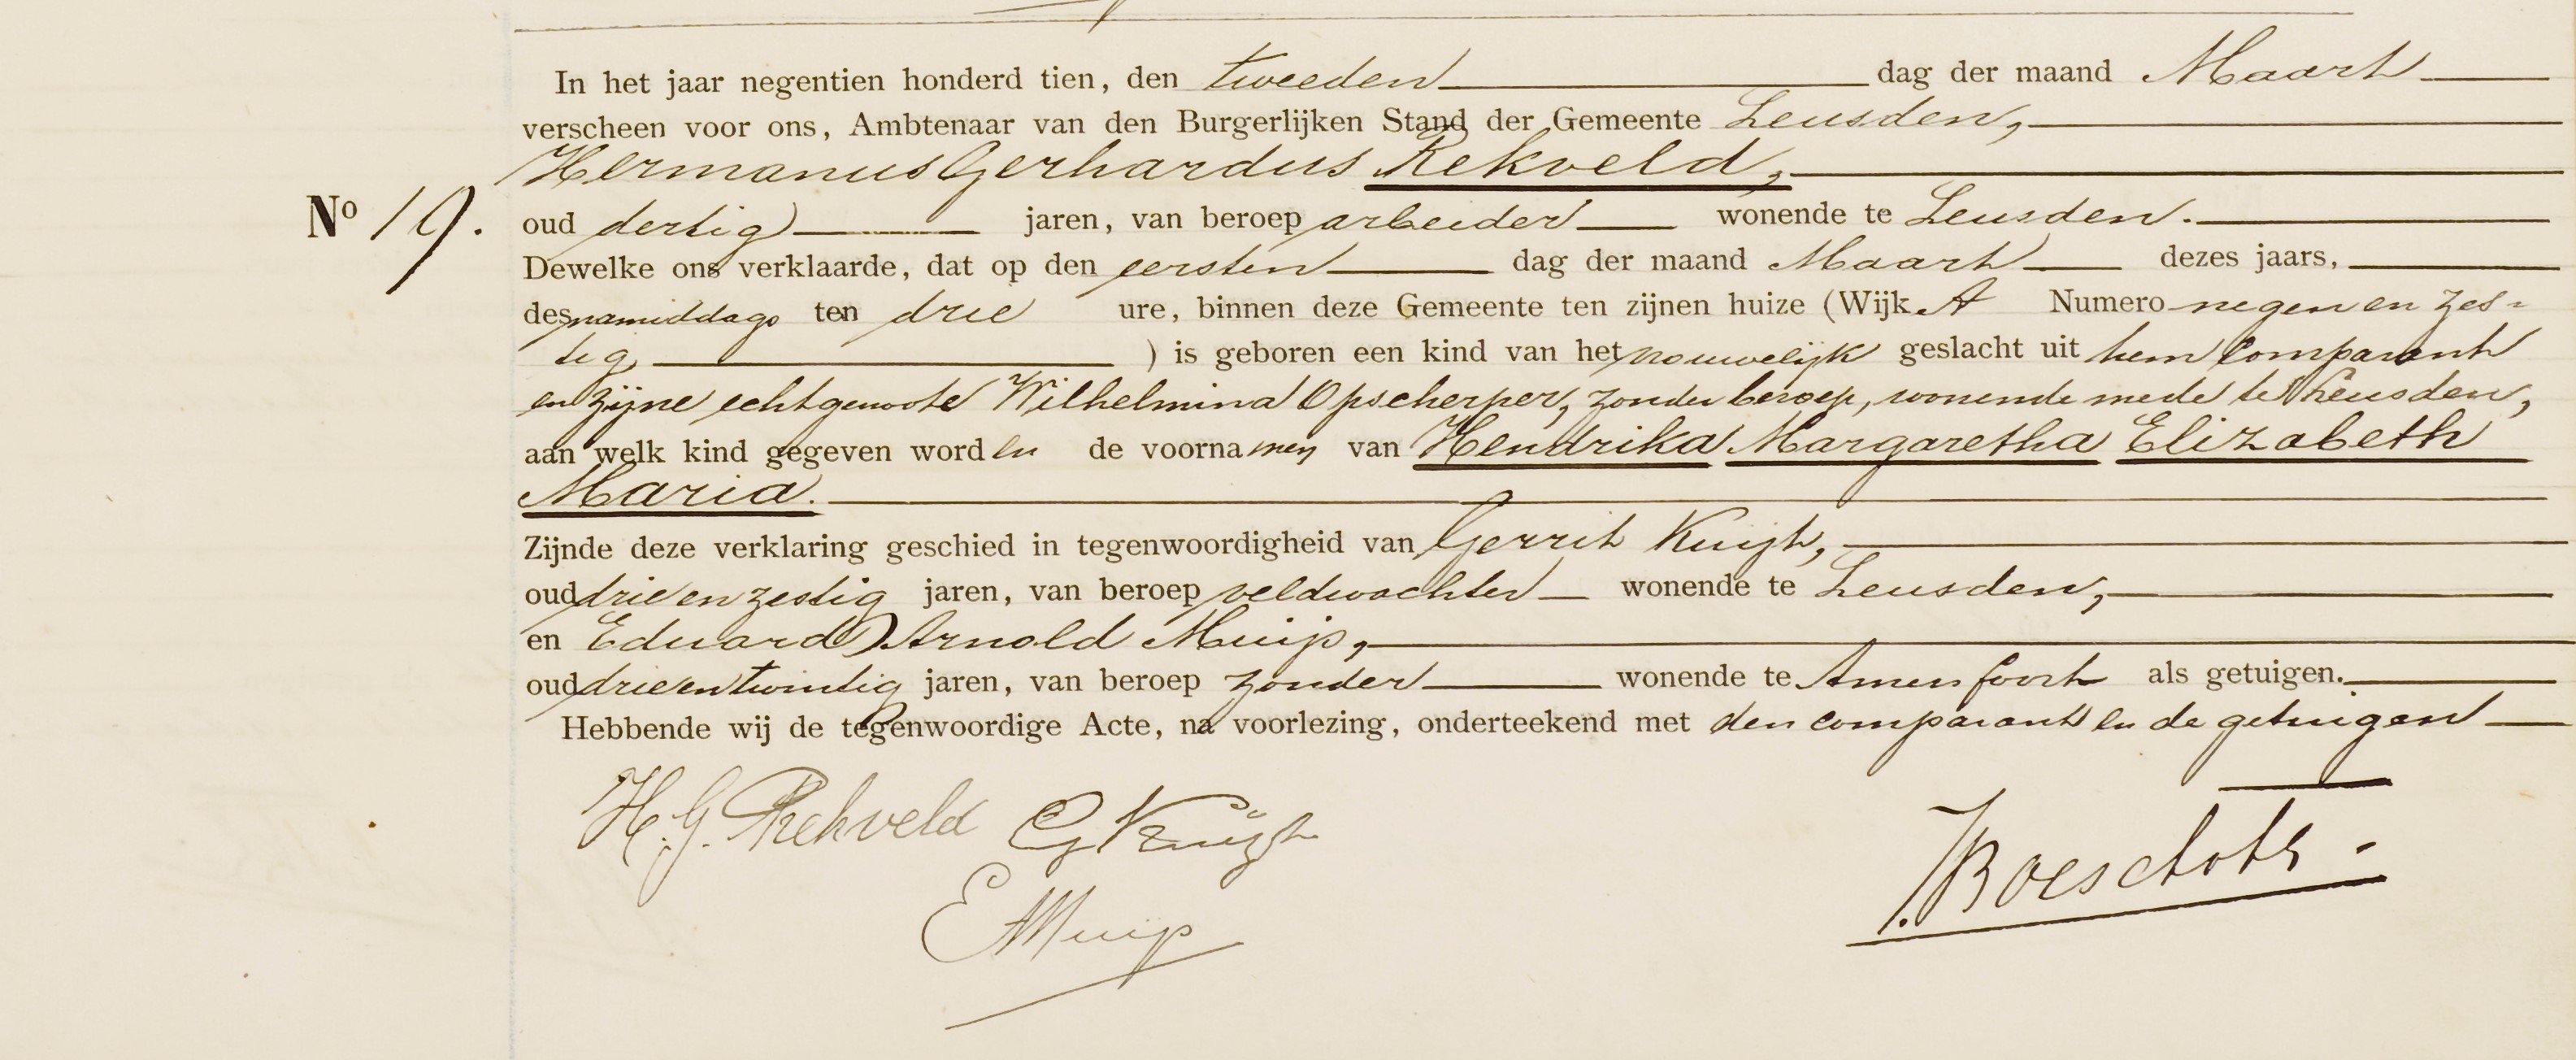 In het jaar negentien honderd tien, den tweeden dag der maand Maart
verscheen voor ons, Ambtenaar van den Burgerlijken Stand der Gemeente Leusden,
Hermanus Gerhardus Rekveld,
No 19. oud dertig jaren, van beroep arbeider wonende te Leusden.
Dewelke ons verklaarde, dat op den eersten dag der maand Maart dezes jaars,
des namiddags ten drie ure, binnen deze Gemeente ten zijnen huize (Wijk A Numero negen en zes=
tig ) is geboren een kind van het vrouwelijk geslacht uit hem comparant
en zijne echtgenoote Wilhelmina Opscherper, zonder beroep, wonende mede te Leusden,
aan welk kind gegeven worden de voornamen van Hendrika Margaretha Elizabeth
Maria.
Zijnde deze verklaring geschied in tegenwoordigheid van Gerrit Kuijt,
oud drie en zestig jaren, van beroep veldwachter wonende te Leusden,
en Eduard Arnold Muijs,
oud drie en twintig jaren, van beroep zonder wonende te Amersfoort als getuigen.
Hebbende wij de tegenwoordige Acte, na voorlezing, onderteekend met den comparant en de getuigen
H. G. Rekveld